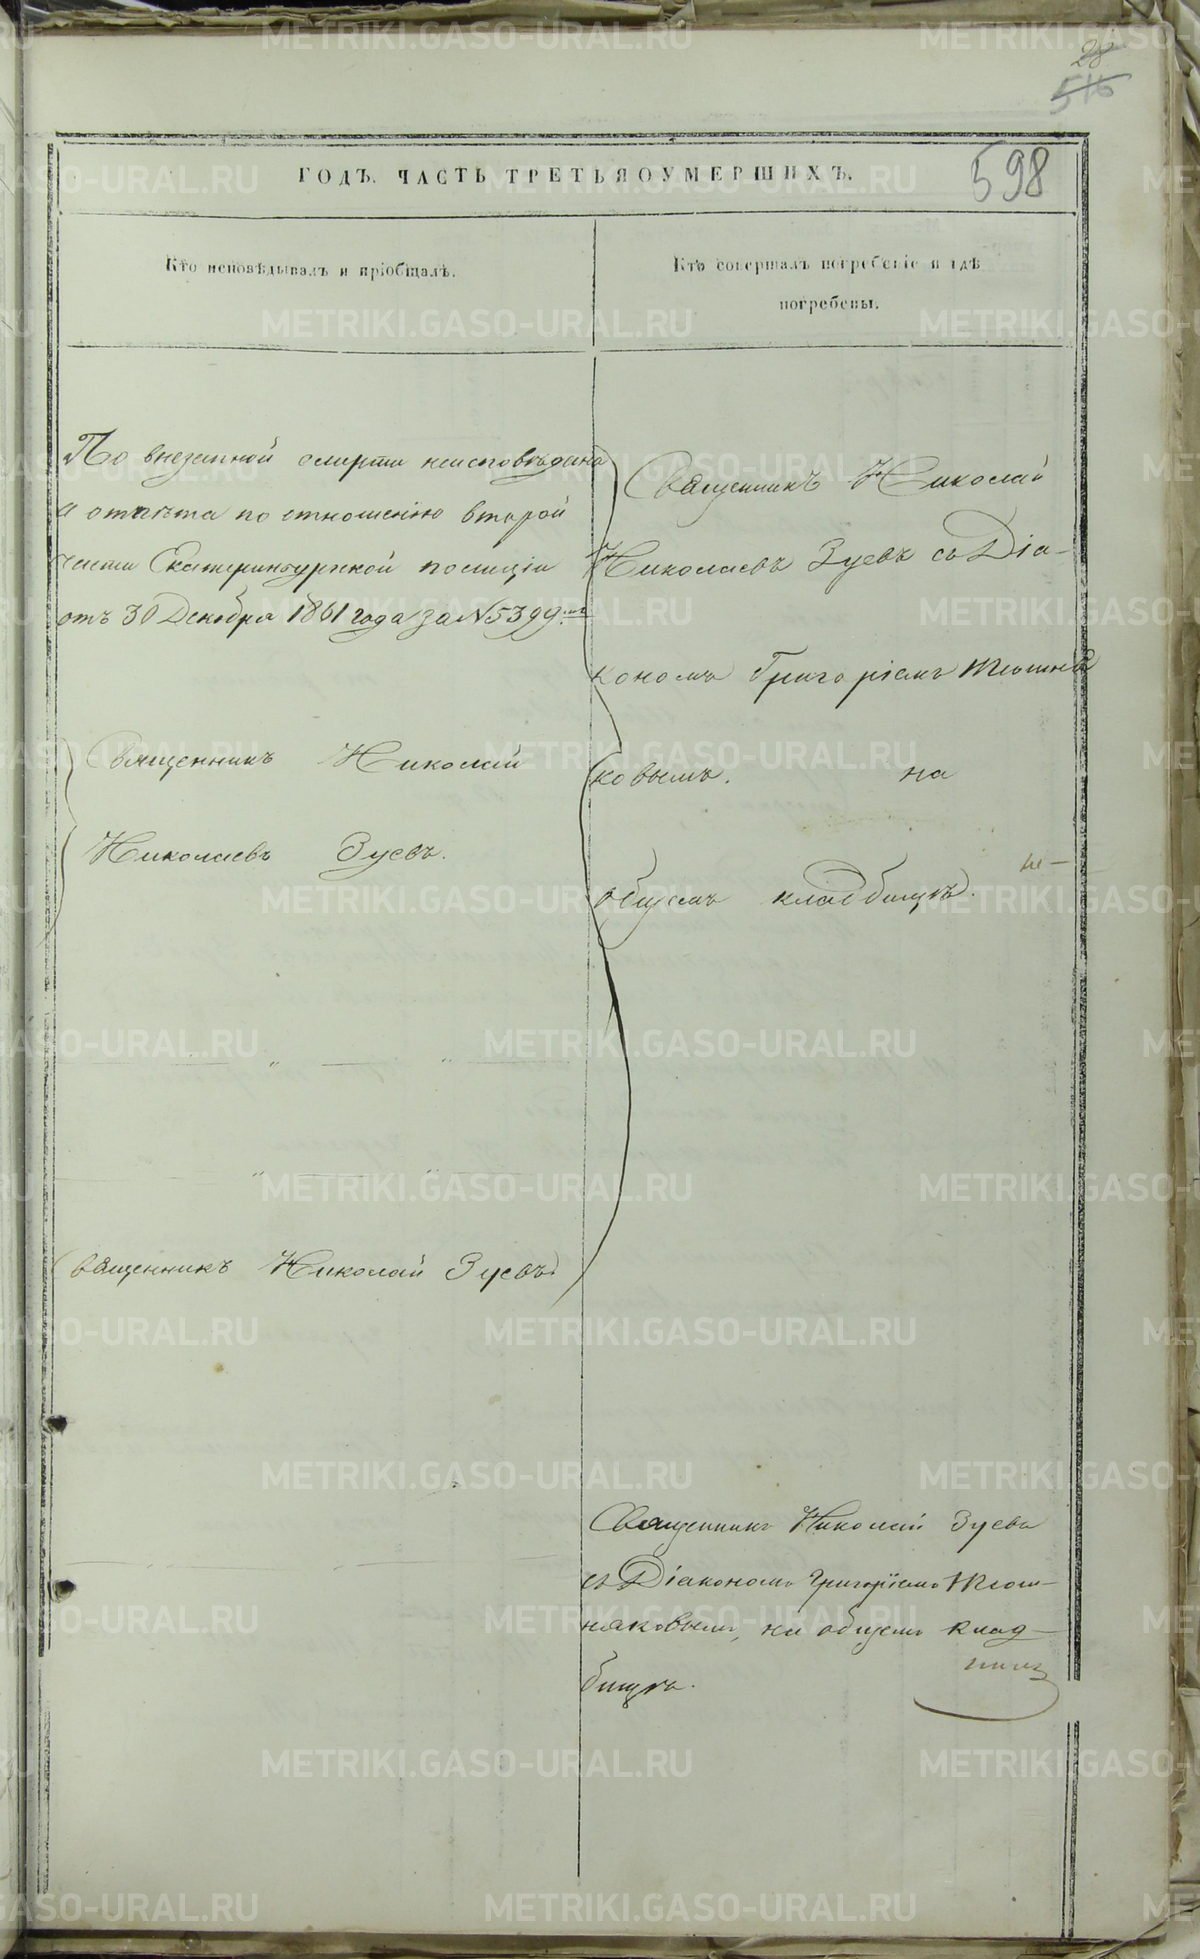 28
516
598
ГОДЪ. ЧАСТЬ ТРЕТЬЯ О УМЕРШИХЪ.
Кто исповѣдывалъ и пріобщалъ.
Кто совершалъ погребеніе и гдѣ
погребены.
По внезапной смерти неисповѣдана
а отпѣта по отношенію второй
части Екатеринбургской полиціи
отъ 30 Декабря 1861 года за № 5399.мъ
Священникъ Николай
Николаевъ Зуевъ.
" "
" "
Священникъ Николай Зуевъ
Священникъ Николай
Николаевъ Зуевъ съ Діа-
кономъ Григоріемъ Тюшня
ковымъ. на
общемъ кладбищѣ.
Священникъ Николай Зуевъ
съ Діакономъ Григоріемъ Тюш-
няковымъ, на общемъ клад-
бищѣ.
METRIKI.GASO-URAL.RU